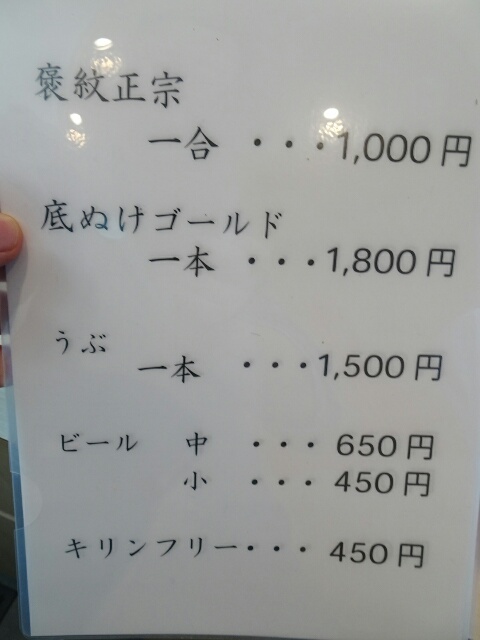 褒紋正宗
一合 ・・・1,000円
底ぬけゴールド
一本 ・・・1,800円
うぶ
一本 ・・・1,500円
ビール 中 ・・・ 650円
小 ・・・ 450円
キリンフリー・・・ 450円